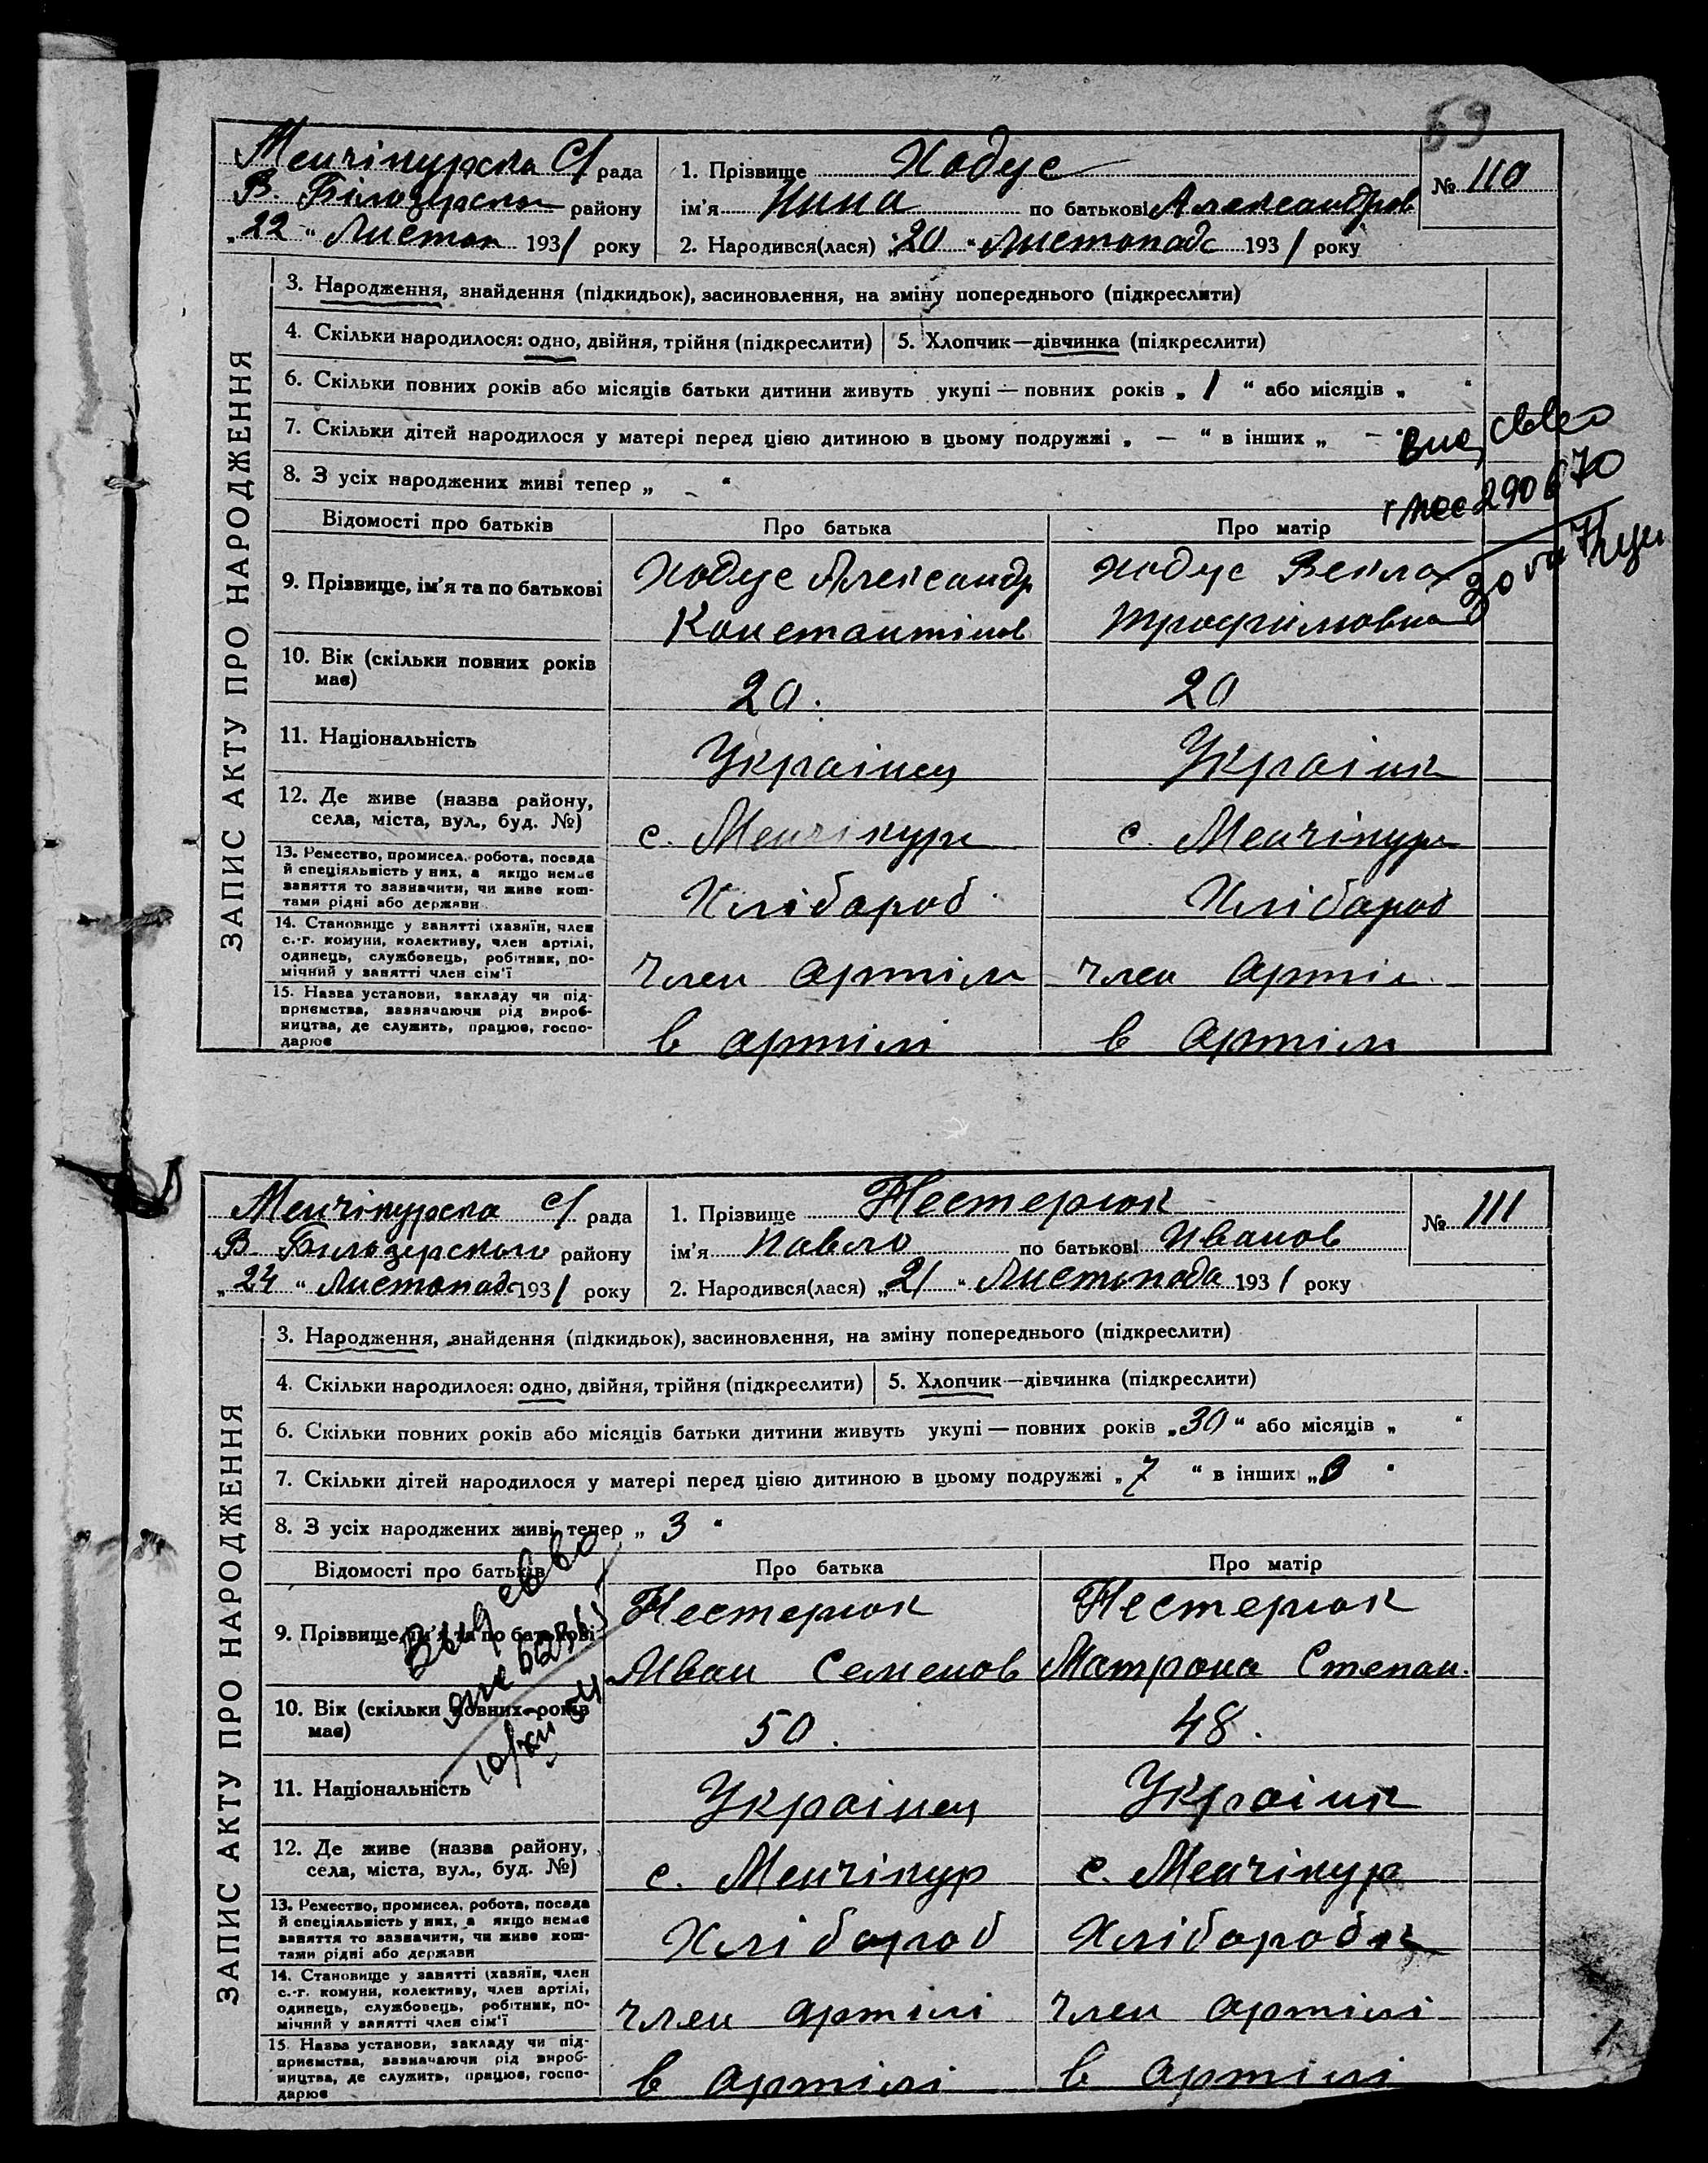 69
Менчікурська С/ рада
В. Білозерськ району
„22“ Листоп 1931 року
1. Прізвище Ходус
ім'я Нина по батькові Александров
2. Народився(лася) „20“ Листопада 1931 року
№ 110
ЗАПИС АКТУ ПРО НАРОДЖЕННЯ
3. Народження, знайдення (підкидьок), засиновлення, на зміну попереднього (підкреслити)
4. Скільки народилося: одно, двійня, трійня (підкреслити)
5. Хлопчик—дівчинка (підкреслити)
6. Скільки повних років або місяців батьки дитини живуть укупі — повних років „ 1 “ або місяців „ “
7. Скільки дітей народилося у матері перед цією дитиною в цьому подружжі „ — “ в інших „ —
8. З усіх народжених живі тепер „ - “
290670
Відомості про батьків
Про батька
Про матір
9. Прізвище, ім'я та по батькові
Ходус Александр
Константінов
Ходус Векла
Трофимовна
10. Вік (скільки повних років
має)
20.
20
11. Національність
Украінец
Украінк
12. Де живе (назва району,
села, міста, вул., буд. №)
с. Менчікури
с. Менчікури
13. Ремество, промисел, робота, посада
й спеціяльність у них, а якщо немає
заняття то зазначити, чи живе кош-
тами рідні або держави
Хлібороб
Хлібороб
14. Становище у занятті (хазяїн, член
с.-г. комуни, колективу, член артілі,
одинець, службовець, робітник, по-
мічний у занятті член сім'ї
член артіли
член артіл
15. Назва установи, закладу чи під-
приємства, зазначаючи рід вироб-
ництва, де служить, працює, госпо-
дарює
в артілі
в артіли
Менчікурська с/ рада
В. Білозерського району
„24“ Листопад 1931 року
1. Прізвище Нестерюк
ім'я Павло по батькові Иванов
2. Народився(лася) „21“ Листопада 1931 року
№ 111
ЗАПИС АКТУ ПРО НАРОДЖЕННЯ
3. Народження, знайдення (підкидьок), засиновлення, на зміну попереднього (підкреслити)
4. Скільки народилося: одно, двійня, трійня (підкреслити)
5. Хлопчик—дівчинка (підкреслити)
6. Скільки повних років або місяців батьки дитини живуть укупі — повних років „30“ або місяців „ “
7. Скільки дітей народилося у матері перед цією дитиною в цьому подружжі „ 7 “ в інших „
8. З усіх народжених живі тепер „ 3 “
Відомості про батьків
Про батька
Про матір
9. Прізвище, ім'я та по батькові
Нестерюк
Иван Семенов
Нестерюк
Матрона Степан.
10. Вік (скільки повних років
має)
50.
48.
11. Національність
Украінец
Украінк
12. Де живе (назва району,
села, міста, вул., буд. №)
с. Менчікур
с. Менчікур
13. Ремество, промисел, робота, посада
й спеціяльність у них, а якщо немає
заняття то зазначити, чи живе кош-
тами рідні або держави
Хлібороб
Хліборобк
14. Становище у занятті (хазяїн, член
с.-г. комуни, колективу, член артілі,
одинець, службовець, робітник, по-
мічний у занятті член сім'ї
член артілі
член артілі
15. Назва установи, закладу чи під-
приємства, зазначаючи рід вироб-
ництва, де служить, працює, госпо-
дарює
в артілі
в артілі